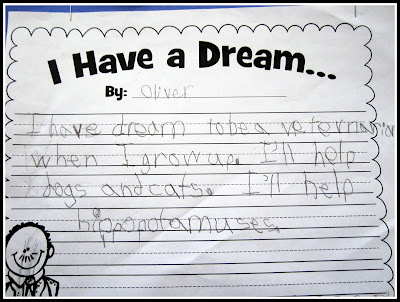 I Have a Dream...
By: Oliver
I have dream to be a veternarior
when I grow up. I'll help
dogs and cats. I'll help
hippopotamuses.